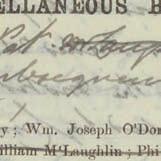 ELLANEOUS B
Pat.
ubsequen
y; Wm. Joseph O'Don
illiam M'Laughlin; Phi